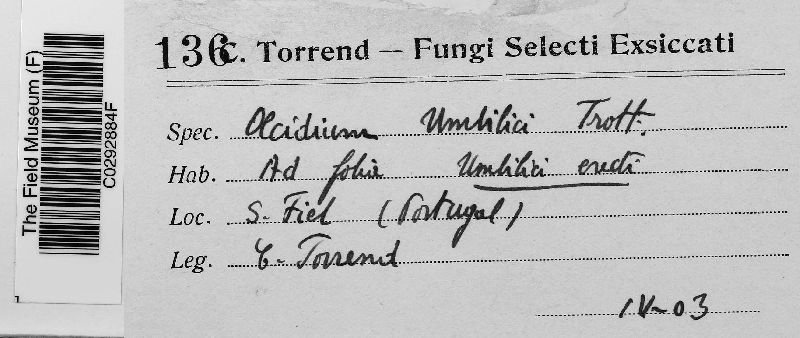 The Field Museum (F)
C0292884F
136 C. Torrend — Fungi Selecti Exsiccati
Spec. Œcidium Umbilici Trott.
Hab. Ad folia Umbilici erecti
Loc. S. Fiel (Portugal)
Leg. C. Torrend
IV-03